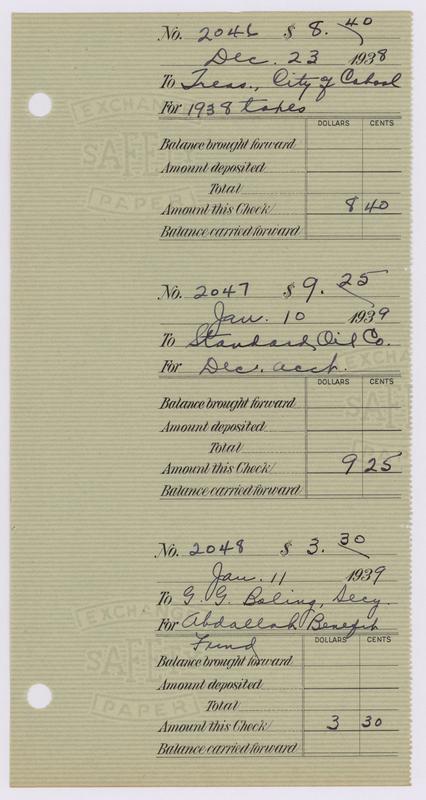 No. 2046 $ 8.40
Dec. 23 1938
To Treas., City of Cabool
For 1938 taxes
DOLLARS CENTS
Balance brought forward
Amount deposited
Total
Amount this Check 8 40
Balance carried forward
No. 2047 $ 9.25
Jan. 10 1939
To Standard Oil Co.
For Dec. acct.
DOLLARS CENTS
Balance brought forward
Amount deposited
Total
Amount this Check 9 25
Balance carried forward
No. 2048 $ 3.30
Jan. 11 1939
To G. G. Boling, Secy.
For Abdallah Benefit
Fund DOLLARS CENTS
Balance brought forward
Amount deposited
Total
Amount this Check 3 30
Balance carried forward
EXCHANGE
SAFETY
PAPER
EXCHA
EXCHANGE
SAFETY
PAPER